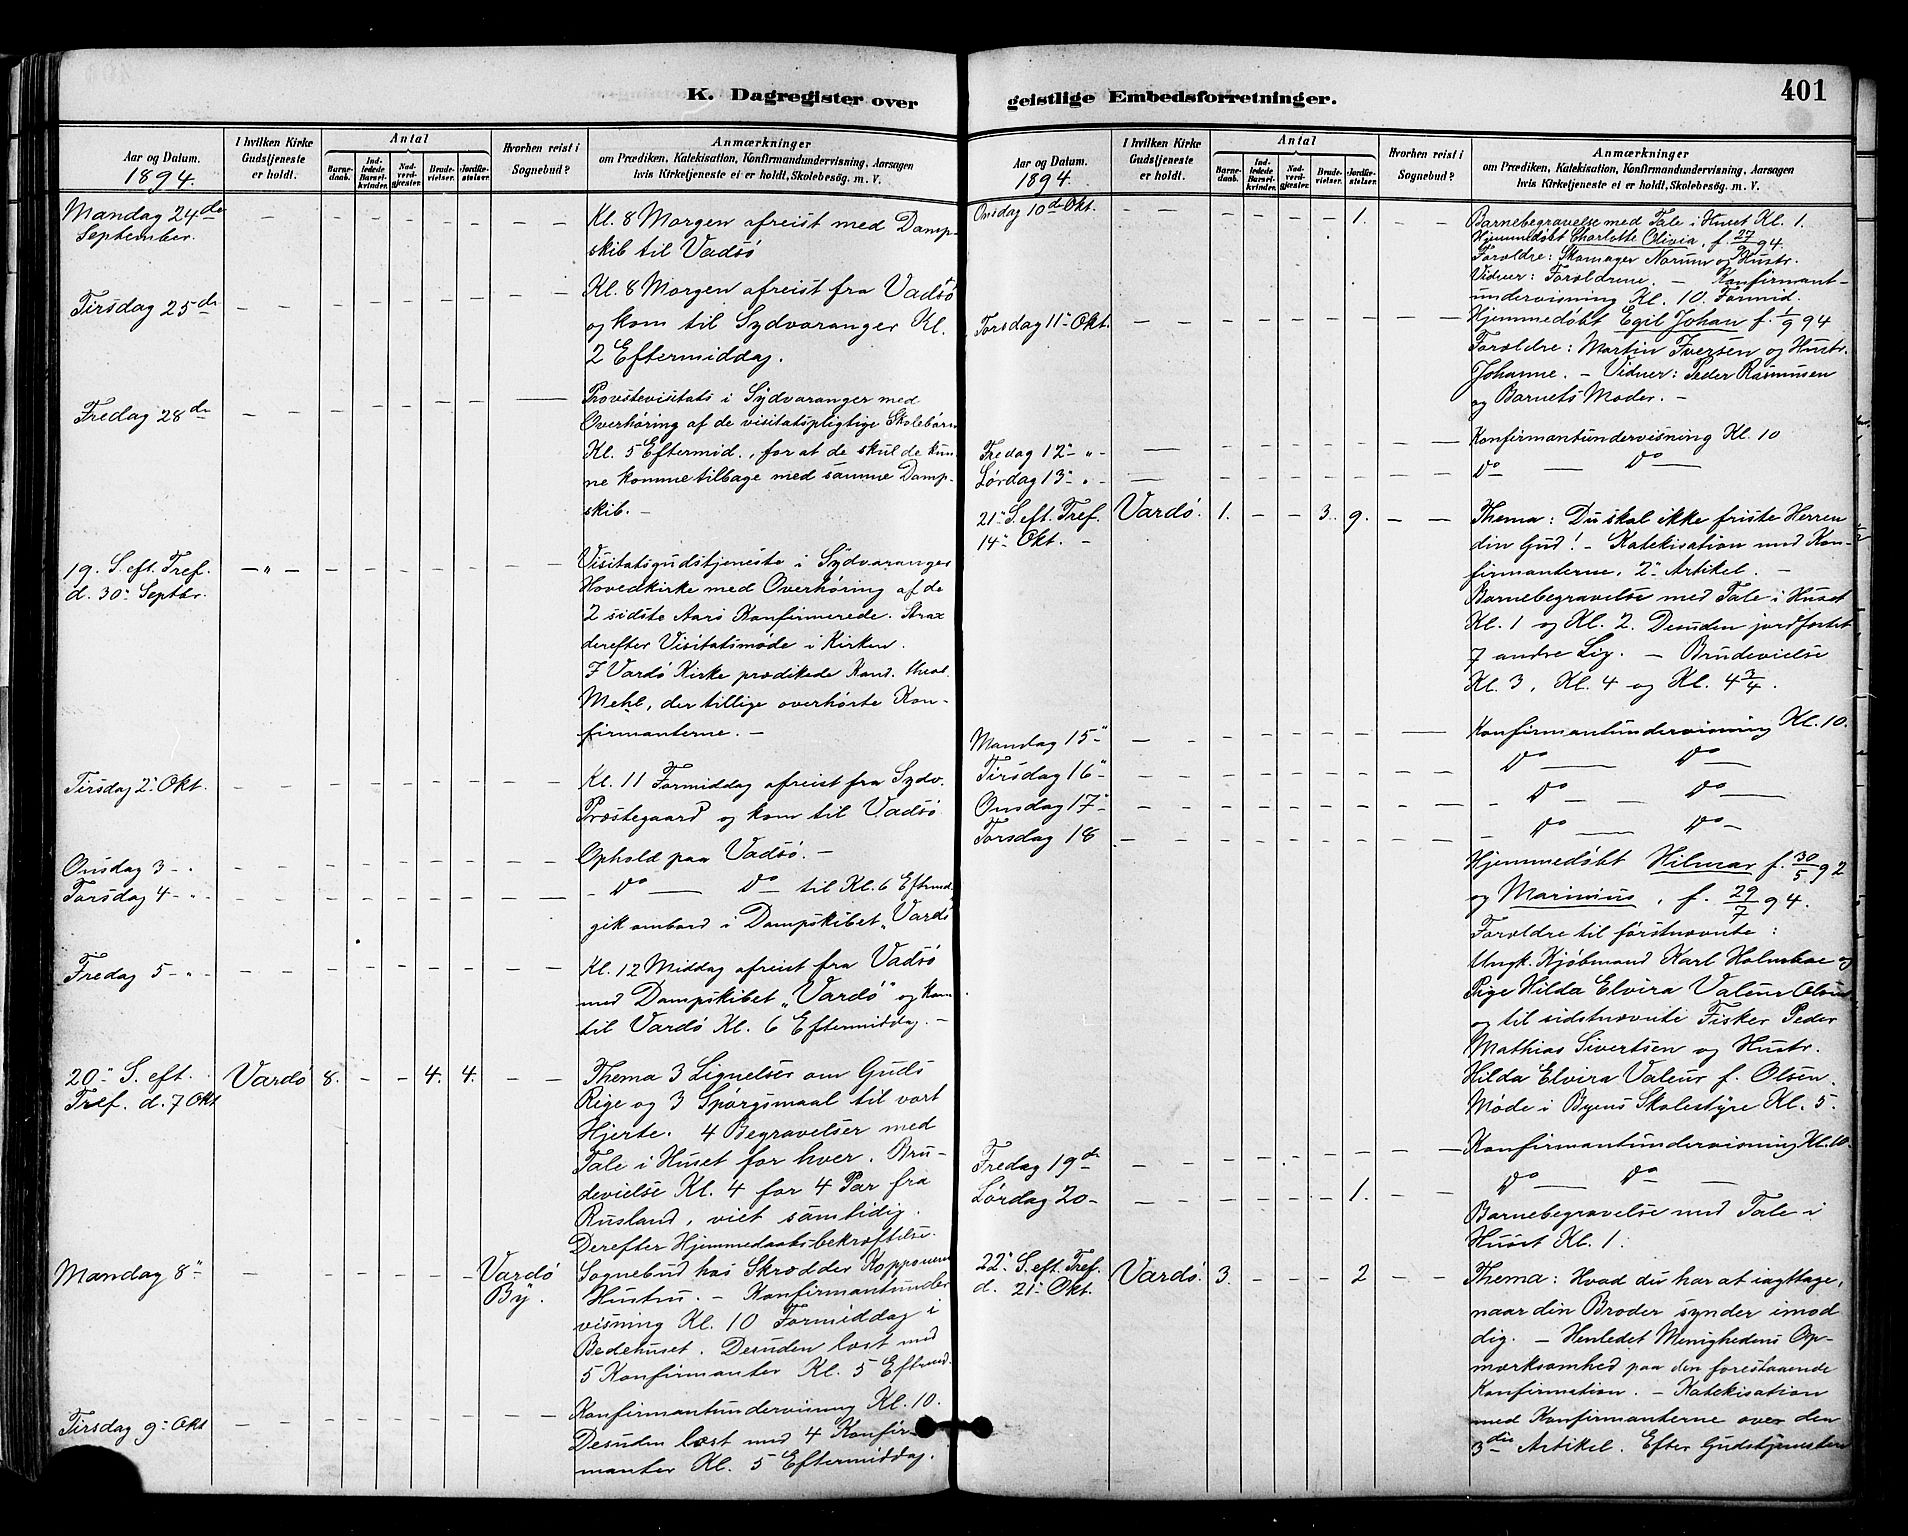 K. Dagregister over
Aar og Datum.
1894.
I hvilken Kirke
Gudstjeneste
er holdt.
Antal
Barne-
daab.
Ind-
ledede
Barsel-
kvinder.
Nad-
verd-
gjester.
Brude-
vielser.
Jordfæ-
stelser.
Hvorhen reist i
Sognebud?
Anmærkninger
om Prædiken, Katekisation, Konfirmandundervisning, Aarsagen
hvis Kirketjeneste ei er holdt, Skolebesøg. m. V.
Mandag 24de
September.
Kl. 8 Morgen afreist med Damp-
skib til Vadsö
Tirsdag 25de
Kl. 8 Morgen afreist fra Vadsö
og kom til Sydvaranger Kl.
2 Eftermiddag.
Fredag 28de
Provstevisitats i Sydvaranger med
Overhøring af de visitatspligtige Skolebørn
Kl. 5 Eftermid., for at de skulde kun-
ne komme tilbage med samme Damp-
skib. -
19. S. eft. Tref.
d. 30" Septbr.
- " -
Visitatsgudstjeneste i Sydvaranger
Hovedkirke med Overhøring af de
2 sidste Aars Konfirmerede. Strax
derefter Visitatsmøde i Kirken.
I Vardö Kirke prædikede Kand. theol.
Mehl, der tillige overhørte Kon-
firmanterne. -
Tirsdag 2" Okt.
Kl. 11 Formiddag afreist fra Sydv.
Præstegaard og kom til Vadsö.
Onsdag 3 - "
Ophold paa Vadsö. -
Torsdag 4 - " -
- Do - Do - til Kl. 6 Eftmd.
gik ombord i Dampskibet „Vardö"
Fredag 5 - " -
Kl. 12 Middag afreist fra Vadsö
med Dampskibet „Vardö" og kom
til Vardö Kl. 6 Eftermiddag. -
20" S. eft.
Tref. d. 7 Okt
Vardö 8. - - 4. 4.
Thema 3 Lignelser om Guds
Rige og 3 Spørgsmaal til vort
Hjerte. 4 Begravelser med
Tale i Huset for hver. Bru-
devielse Kl. 4 for 4 Par fra
Rusland, viet samtidig.
Derefter Hjemmedaabs-bekræftelse.
Mandag 8"
Vardö
By.
Sognebud hos Skrædder Kopponens
Hustru. - Konfirmantunder-
visning Kl. 10 Formiddag i
Bedehuset. Desuden læst med
5 Konfirmanter Kl. 5 Eftmd.
Tirsdag 9" Okt
Konfirmantundervisning Kl. 10.
Desuden læst med 4 Konfir-
manter Kl. 5 Eftermiddag.
geistlige Embedsforretninger.
401
Aar og Datum.
1894.
I hvilken Kirke
Gudstjeneste
er holdt.
Antal
Barne-
daab.
Ind-
ledede
Barsel-
kvinder.
Nad-
verd-
gjester.
Brude-
vielser.
Jordfæ-
stelser.
Hvorhen reist i
Sognebud?
Anmærkninger
om Prædiken, Katekisation, Konfirmandundervisning, Aarsagen
hvis Kirketjeneste ei er holdt, Skolebesøg. m. V.
Onsdag 10de Okt.
1.
Barnebegravelse med Tale i Huset Kl. 1.
Hjemmedøbt Charlotte Olivia, f. 27/9 94.
Forældre: Skomager Norum og Hustr.
Vidner: Forældrene. - Konfirmant-
undervisning Kl. 10 Formid.
Torsdag 11" Okt.
Hjemmedøbt Egil Johan f. 1/9 94
Forældre: Martin Iversen og Hustr.
Johanne. - Vidner: Peder Rasmussen
og Barnets Moder. -
Fredag 12" - " -
Konfirmantundervisning Kl. 10
Lørdag 13" - " -
Do - Do
21" S. eft. Tref.
14" Okt. -
Vardö. 1. - - 3. 9.
Thema: Du skal ikke friste Herren
din Gud! - Katekisation med Kon-
firmanterne, 2" Artikel. -
Barnebegravelse med Tale i Huset
Kl. 1 og Kl. 2. Desuden jordfæstet
7 andre Lig. - Brudevielse
Kl. 3, Kl. 4 og Kl. 4 3/4.
Mandag 15"
Konfirmantundervisning Kl. 10.
Tirsdag 16"
Do - Do
Onsdag 17"
Do - Do -
Torsdag 18
Do - Do -
Hjemmedøbt Hilmar f. 30/5 92
og Marinius, f. 29/7 94.
Forældre til førstnævnte:
Ungk. Kjøbmand Karl Holmboe og
Pige Hilda Elvira Valeur Olsen
og til sidstnævnte Fisker Peder
Mathias Sivertsen og Hustr.
Hilda Elvira Valeur f. Olsen.
Møde i Byens Skolestyre Kl. 5.
Fredag 19de
Konfirmantundervisning Kl. 10.
Lørdag 20 -
1.
Do - Do -
Barnebegravelse med Tale i
Huset Kl. 1.
22" S. eft. Tref.
d. 21" Okt.
Vardö. 3. - - - 2
Thema: Hvad du har at iagttage,
naar din Broder synder imod
dig. - Henledet Menighedens Op-
mærksomhed paa den forestaaende
Konfirmation. - Katekisation
med Konfirmanterne over den
3die Artikel. Efter Gudstjenesten